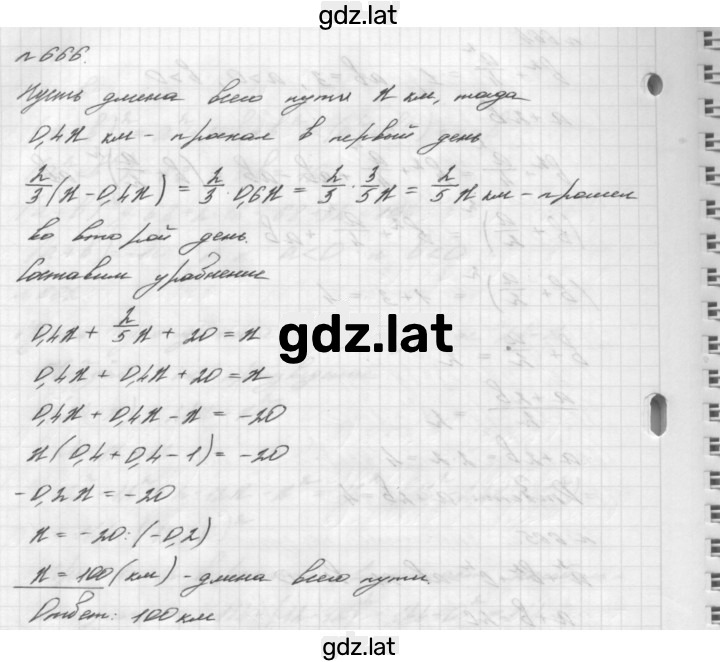 gdz.lat
№666.
Пусть длина всего пути x км, тогда
0,4x км - проехал в первый день
2/3(x-0,4x) = 2/3·0,6x = 2/3·3/5x = 2/5x км - прошел
во второй день.
Составим уравнение
0,4x + 2/5x + 20 = x
gdz.lat
0,4x + 0,4x + 20 = x
0,4x + 0,4x - x = -20
x(0,4+0,4-1) = -20
-0,2x = -20
x = -20:(-0,2)
x = 100(км) - длина всего пути.
Ответ: 100 км
gdz.lat